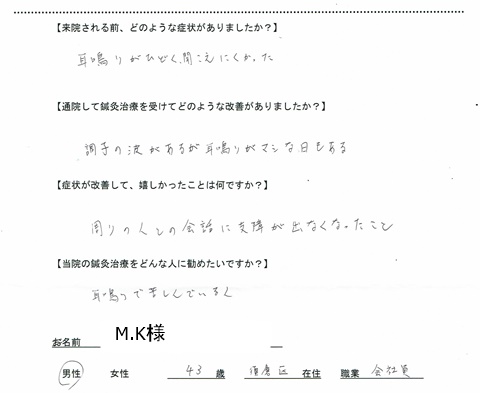 【来院される前、どのような症状がありましたか？】
耳鳴りがひどく、聞こえにくかった
【通院して鍼灸治療を受けてどのような改善がありましたか？】
調子の波があるが耳鳴りがマシな日もある
【症状が改善して、嬉しかったことは何ですか？】
周りの人との会話に支障が出なくなったこと
【当院の鍼灸治療をどんな人に勧めたいですか？】
耳鳴りで苦しんでいる人
お名前 M.K様
男性 女性 43 歳 須磨区 在住 職業 会社員